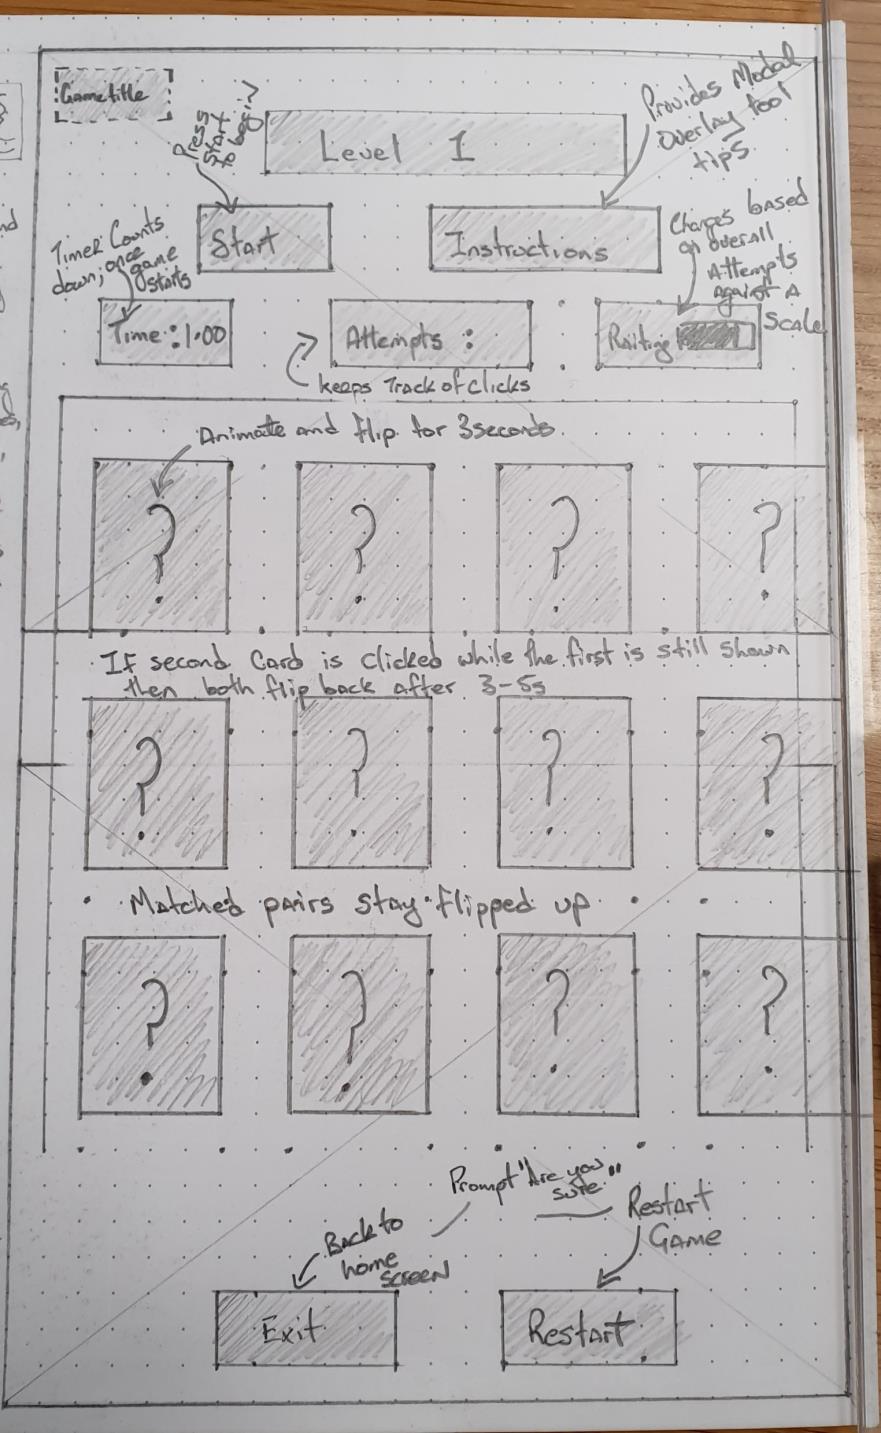 Gametitle
Press
start
to begin
Level 1
Provides Modal
overlay tool
tips
Start
Instructions
Timer Counts
down; once
game
starts
Changes based
on overall
Attempts
against a
Scale
Time:1.00
Attempts :
Raiting
keeps Track of clicks
Animate and flip for 3seconds
?
?
?
?
If second Card is clicked while the first is still shown
then both flip back after 3-5s
?
?
?
?
Matched pairs stay flipped up
?
?
?
?
Prompt "Are you
sure"
Back to
home
screen
Restart
Game
Exit
Restart